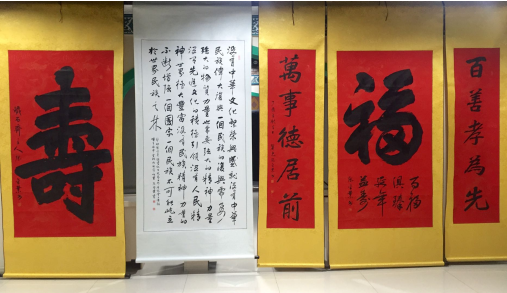 壽
没有中華文化繁榮興盛就没有中華
民族偉大復興一個民族的復興需要
强大的物質力量也需要强大的精神力量
没有先進文化的積極引領没有人民精
神世界極大豐富没有民族精神力量的
不斷增强一個國家一個民族不可能屹立
於世界民族之林
萬事德居前
福
百福
百善孝為先